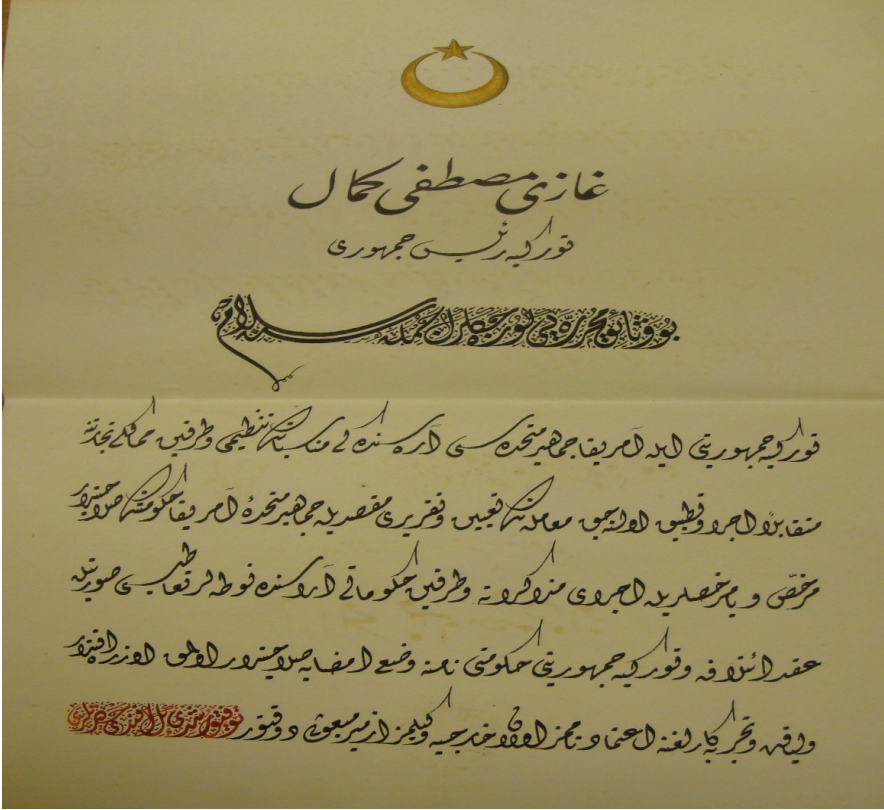 غازی مصطفی كمال
توركیه رئیس جمهوری
بو وثائق محرره‌یی كوره‌جكلرك جمله‌سنه سلام
توركیه جمهوریتی ایله آمریقا جماهیر متحده‌سی آره‌سنده‌كی مناسباتك تنظیمی و طرفین ممالكی تجارتنه
متقابلاً اجرا و تطبیق اولنه‌جق معامله‌نك تعیین و تقریری مقصدیله جماهیر متحدۀ آمریقا حكومتنك صلاحیتدار
مرخص و یا مرخصلریله اجرای مذاكراته و طرفین حكوماتی آراسنده نوطه‌لر تعاطیسی صورتیله
عقد ائتلافه و توركیه جمهوریتی حكومتی نامنه وضع امضایه صلاحیتدار اولمق اوزره اقتدار
ولیاقت و تجربه‌كارلغنه اعتماد تاممز اولان خارجیه وكیلمز ازمیر مبعوثی دوقتور توفیق رشدی بك افندی حضرتلری